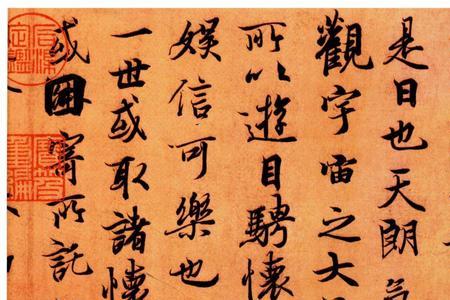 是日也天朗氣
觀宇宙之大
所以遊目騁懷
娛信可樂也
一世或取諸懷
或因寄所託